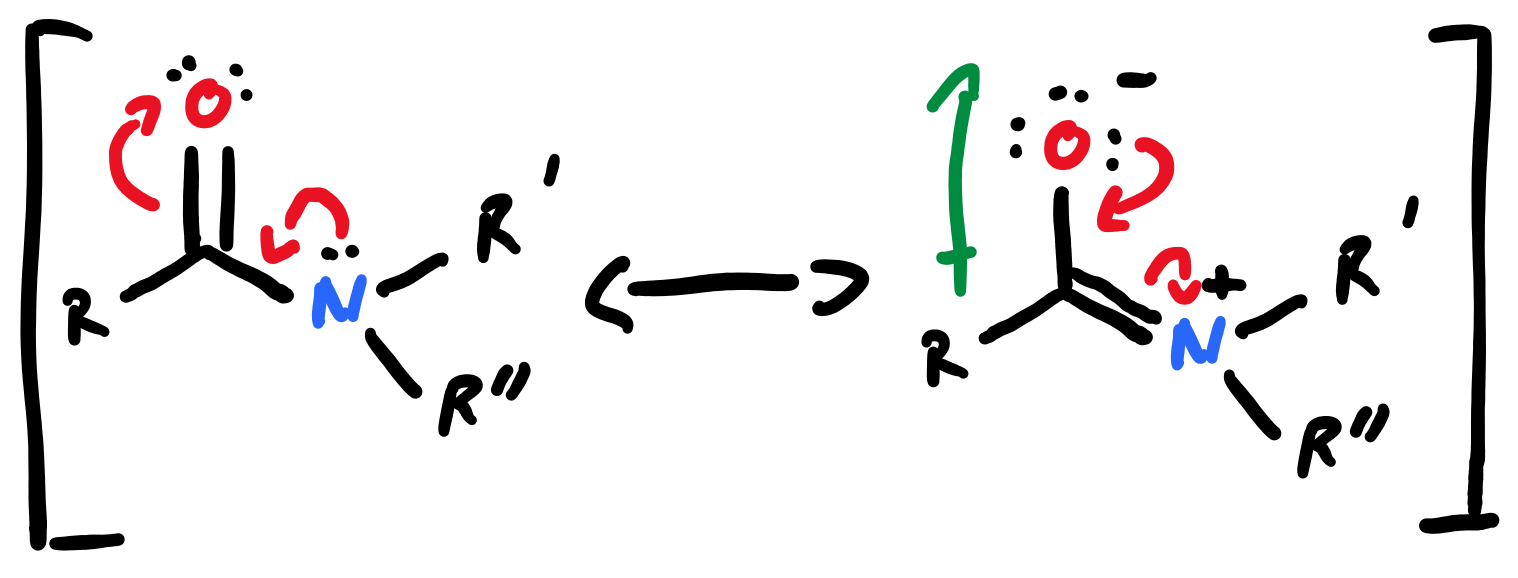 O
R N R' R''
O −
R N + R' R''